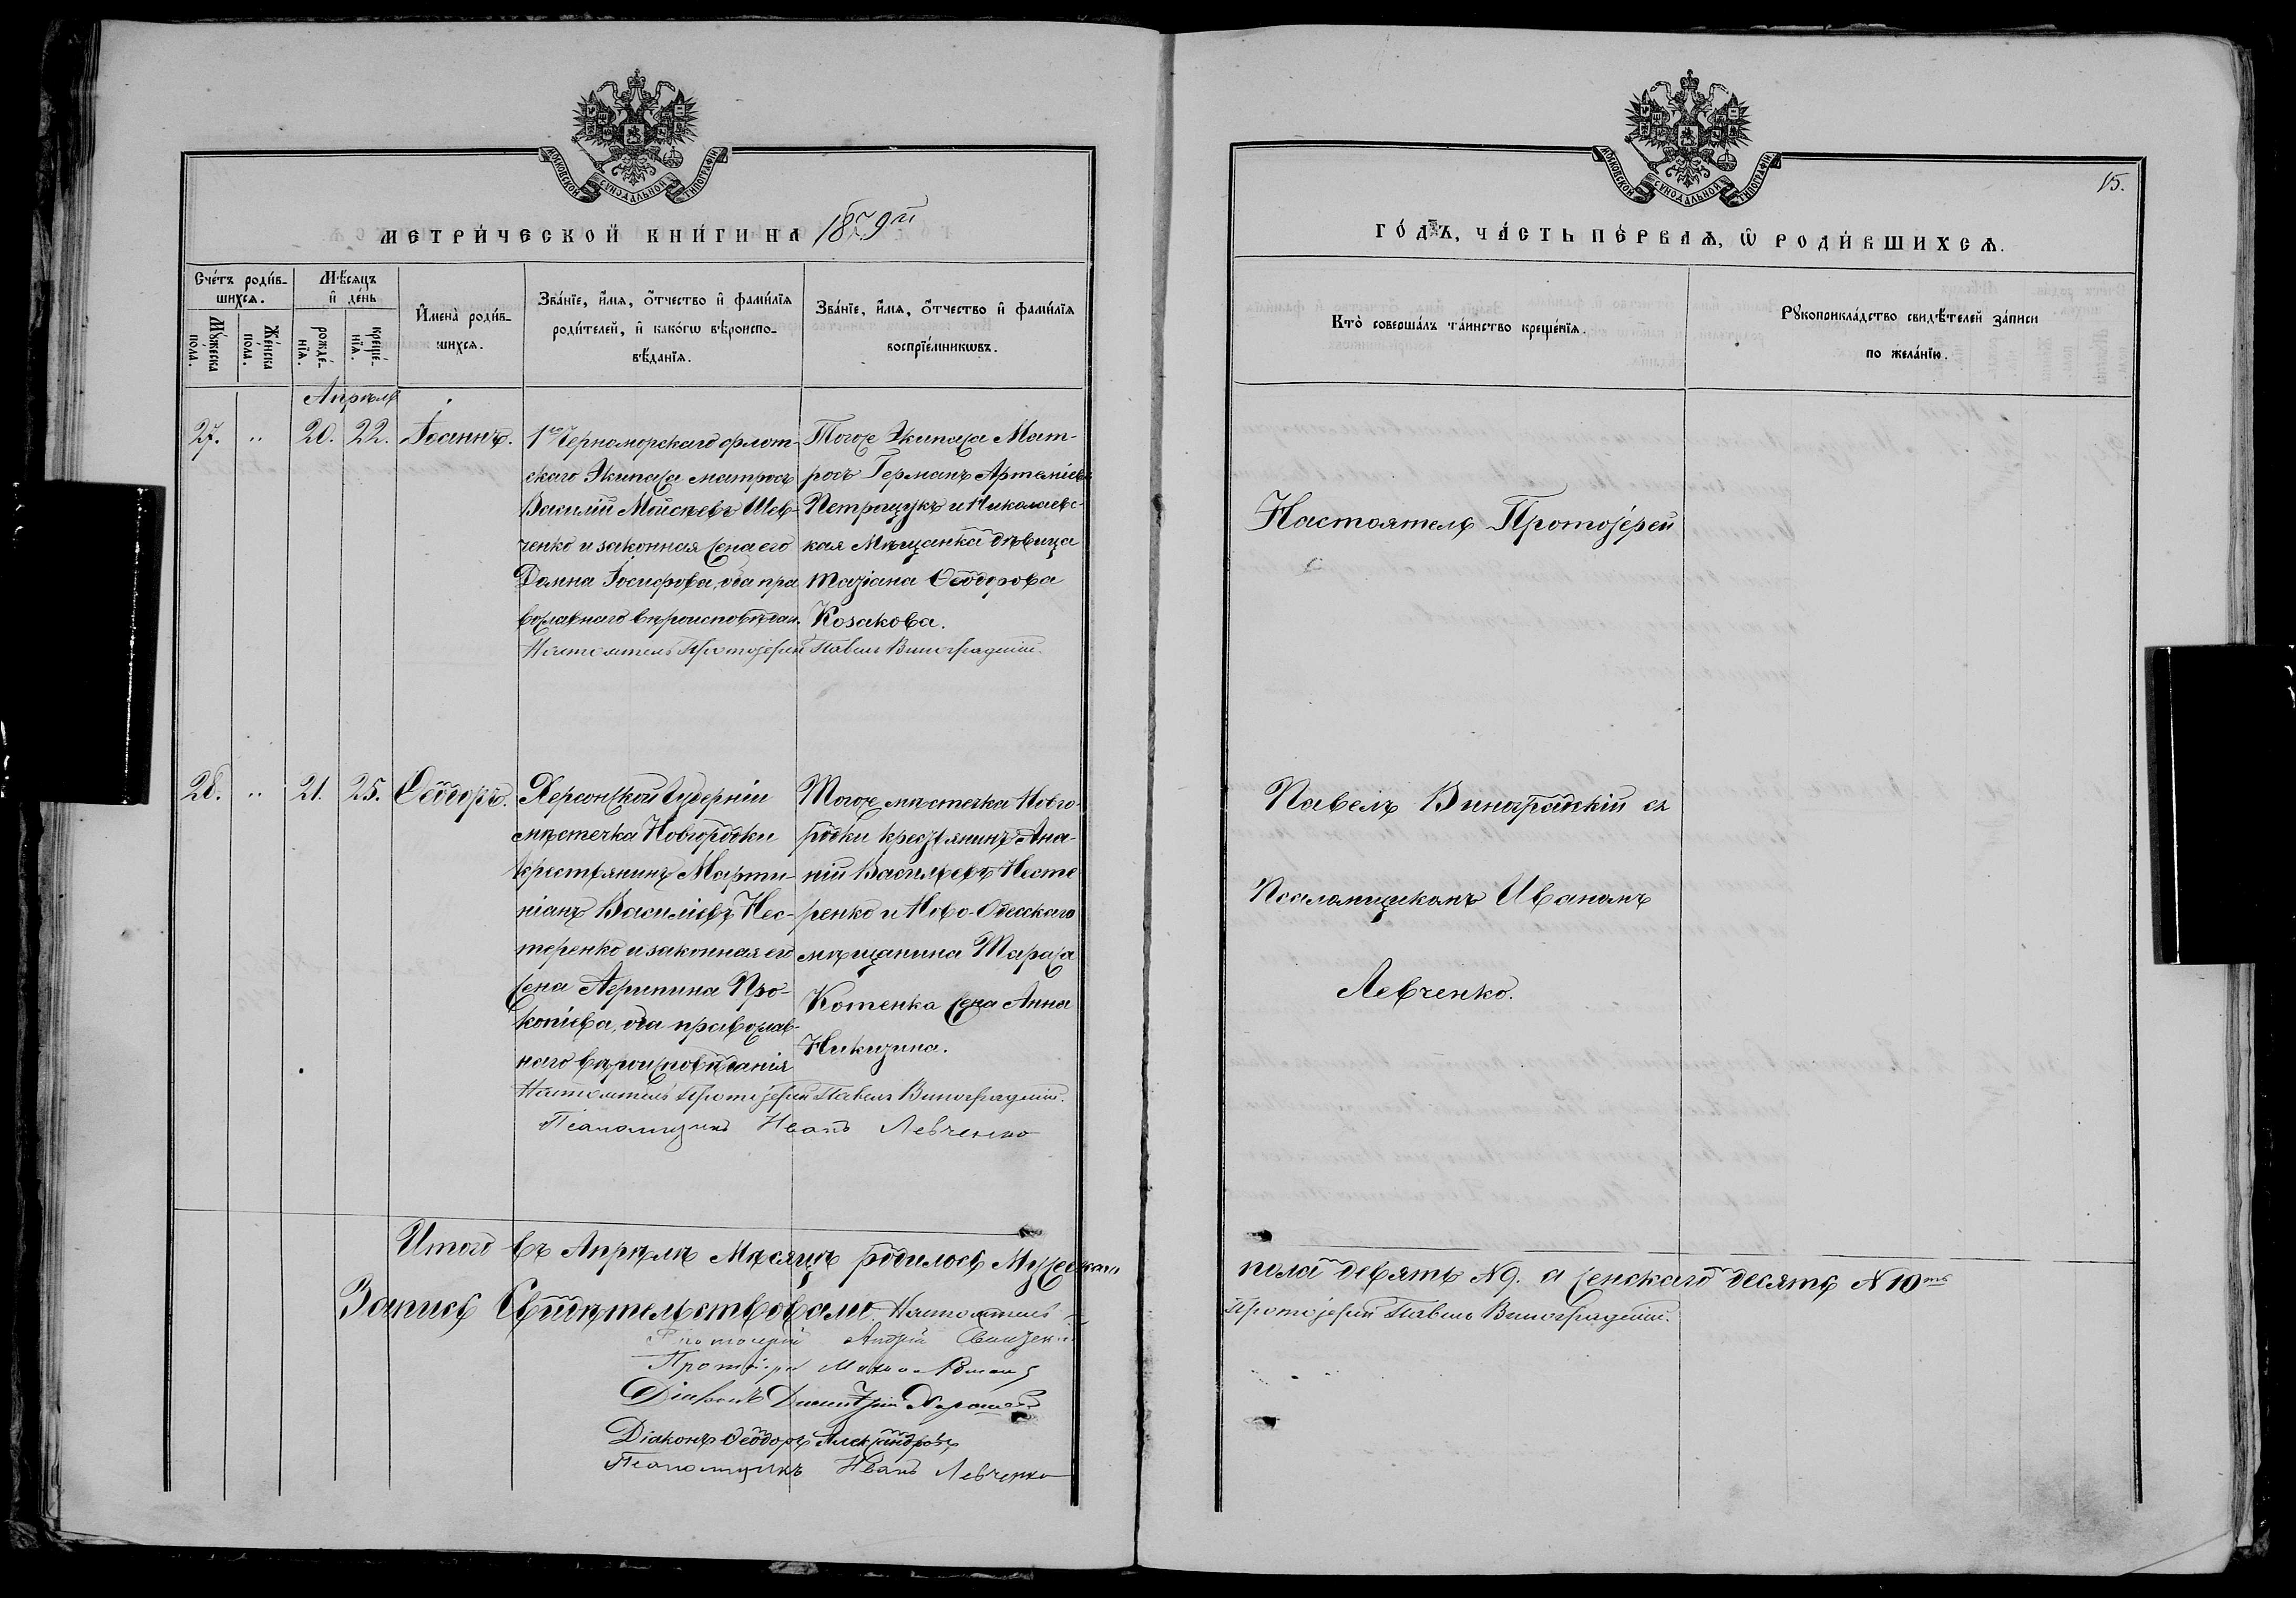 МОСКОВСКОЙ СѴНОДАЛЬНОЙ ТИПОГРАФІИ
МЕТРИ́ЧЕСКОЙ КНИ́ГИ НА 1879й
Счéтъ роди́в-
шихсѧ.
Мꙋ́жеска
пóла.
Жéнска
пóла.
Мѣ́сѧцъ
и҆ дéнь
рождé-
нїѧ.
крещé-
нїѧ.
И҆менà роди́в-
шихсѧ.
Звáнїе, и҆́мѧ, ѻ҆́тчество и҆ фами́лїѧ
роди́телей, и҆ какóгѡ вѣроиспо-
вѣ́данїѧ.
Звáнїе, и҆́мѧ, ѻ҆́тчество и҆ фами́лїѧ
воспрїéмникѡвъ.
Апрѣль
27. „ 20. 22. Іоаннъ.
1го Черноморскаго флот-
скаго Экипажа матросъ
Василій Моисѣевъ Шев-
ченко и законная жена его
Домна Іосифова, оба пра
вославнаго вѣроисповѣдан.
Тогоже Экипажа Мат-
росъ Германъ Артеміевъ
Петрощукъ и Николаевс-
кая Мѣщанка дѣвица
Татіана Ѳеодорова
Козакова.
Настоятель Протоіерей Павелъ Виноградскій.
28. „ 21. 25. Ѳеодоръ.
Херсонской Губерніи
мѣстечка Новгородки
крестьянинъ Марти-
ніанъ Василіевъ Нес-
теренко и законная его
жена Агрипина Про-
копіева, оба православ-
наго вѣроисповѣданія
Тогоже мѣстечка Новго-
родки крестьянинъ Ана-
ній Васильевъ Несте
ренко и Ново-Одесскаго
мѣщанина Тараса
Котенка жена Анна
Никитина.
Настоятель Протоіерей Павелъ Виноградскій.
Псаломщикъ Иванъ Левченко
Итого въ Апрѣлѣ Мѣсяцѣ родилось Мужескаго
Запись Свидѣтельствовали Настоятель
Протоіерей Андрей
Протоіерей
Діаконъ Димитрій
Діаконъ Ѳеодоръ Александровъ
Псаломщикъ Иванъ Левченко
МОСКОВСКОЙ СѴНОДАЛЬНОЙ ТИПОГРАФІИ
15.
ГÓДЪ, ЧÁСТЬ ПÉРВАѦ, Ѡ҆ РОДИ́ВШИХСѦ.
Ктò совершáлъ тáинство крещéнїѧ.
Рꙋкоприклáдство свидѣ́телей зáписи
по желáнїю.
Настоятель Протоіерей
Павелъ Виноградскій съ
Псаломщикомъ Иваномъ
Левченко.
пола девять N 9. а женскаго десять N 10ть
Протоіерей Павелъ Виноградскій.